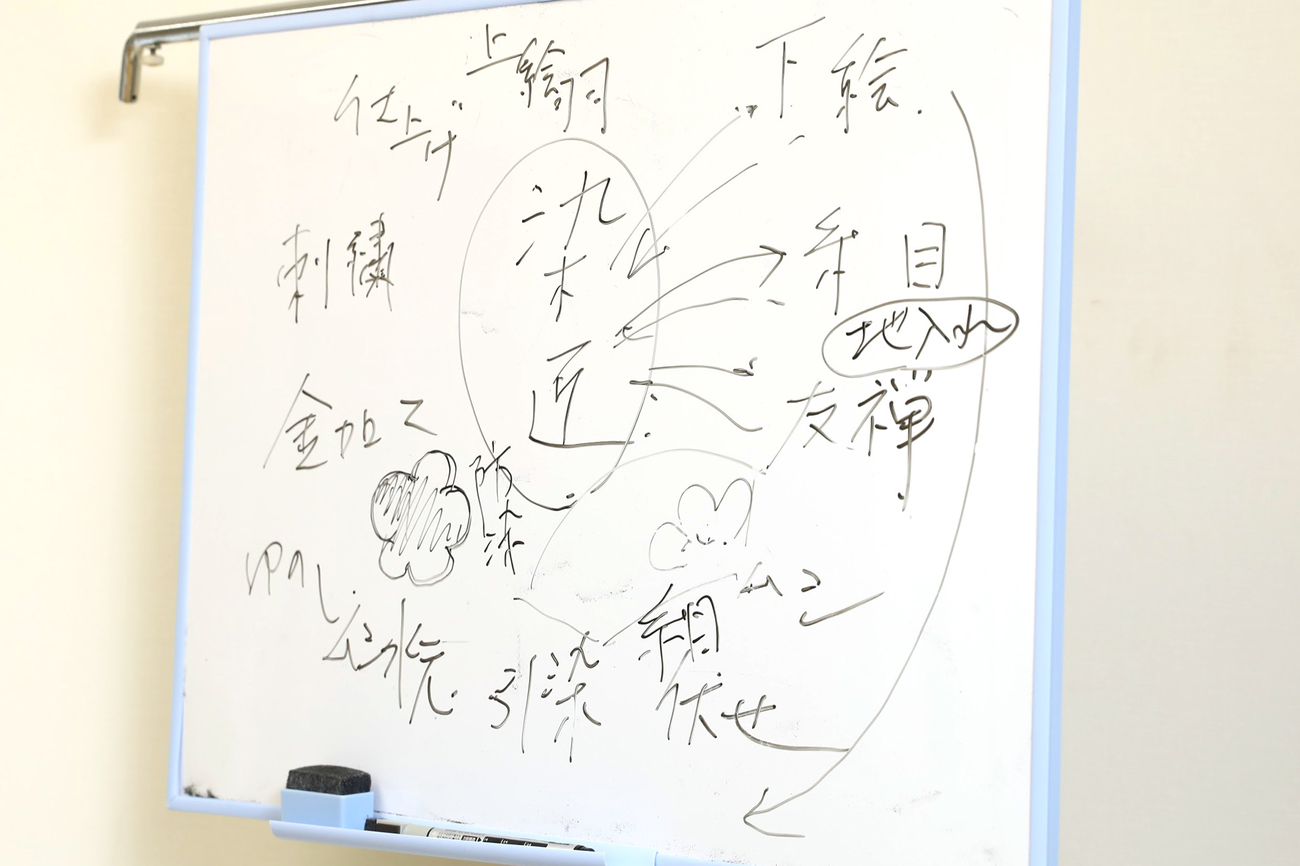 下絵
糸目
地入れ
友禅
伏せ
引染
水洗
ゆのし
防染
金加工
刺繍
仕上げ
上絵羽
染匠